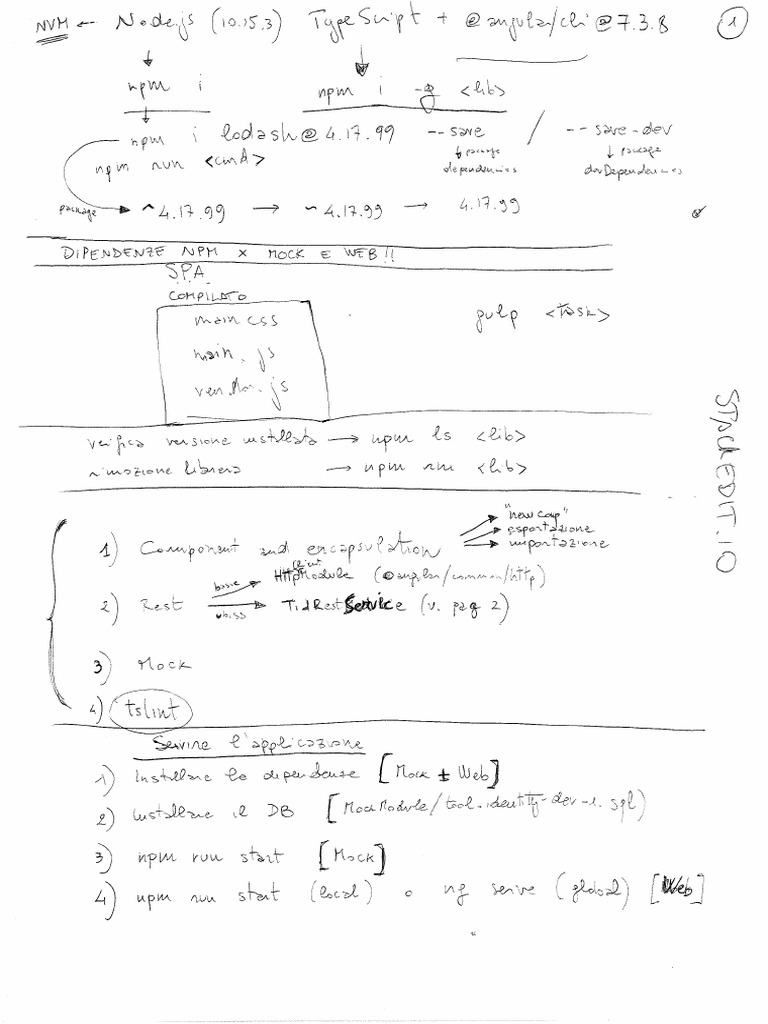 NVM ← Node.js (10.15.3) TypeScript + @angular/cli@7.3.8 1
npm i npm i -g <lib>
npm i lodash@4.17.99 --save / --save-dev
npm run <cmd> ↓ package ↓ package
dependencies devDependencies
package → ^4.17.99 → ~4.17.99 → 4.17.99
DIPENDENZE NPM x MOCK E WEB!!
S.P.A.
COMPILATO
main css
main.js
vendor.js
gulp <task>
STACKEDIT.IO
verifica versione installata → npm ls <lib>
rimozione libreria → npm rm <lib>
1) Component and encapsulation
"new comp"
esportazione
importazione
2) Rest
base → HttpClientModule (@angular/common/http)
→ TidRestService (v. pag 2)
3) Mock
4) tslint
Servire l'applicazione
1) Installare le dipendenze [Mock + Web]
2) Installare il DB [MockModule/tool-identity-dev-1.sql)
3) npm run start [Mock]
4) npm run start (local) o ng serve (global) [Web]